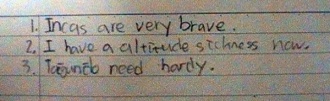 1. Incas are very brave.
2. I have a altitude sickness now.
3. need hardy.